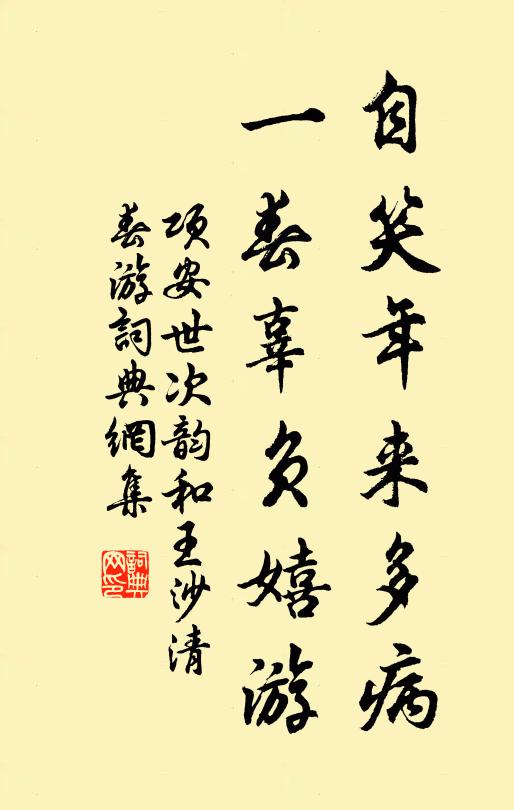 自笑年来多病
一春辜负嬉游
项安世次韵和王沙清
春游詞典網集
詞典網印